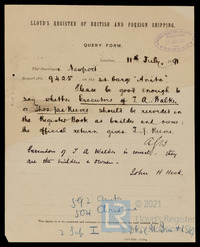 LLOYD'S REGISTER OF BRITISH AND FOREIGN SHIPPING.
QUERY FORM.
London, 11th July, 1891
The Surveyors Newport
Report No. 9425 on ss. barge "Anita"
Please be good enough to
say whether Executors of T. A. Walker
or Thos. Jas. Reeves should be recorded in
the Register Book as builder and owner:
the official return gives T. J. Reeves.
Executors of T. A. Walker is correct. they
are the builders & owners.
John H Heck.
592 Anita
504
2 Sup I
©2021